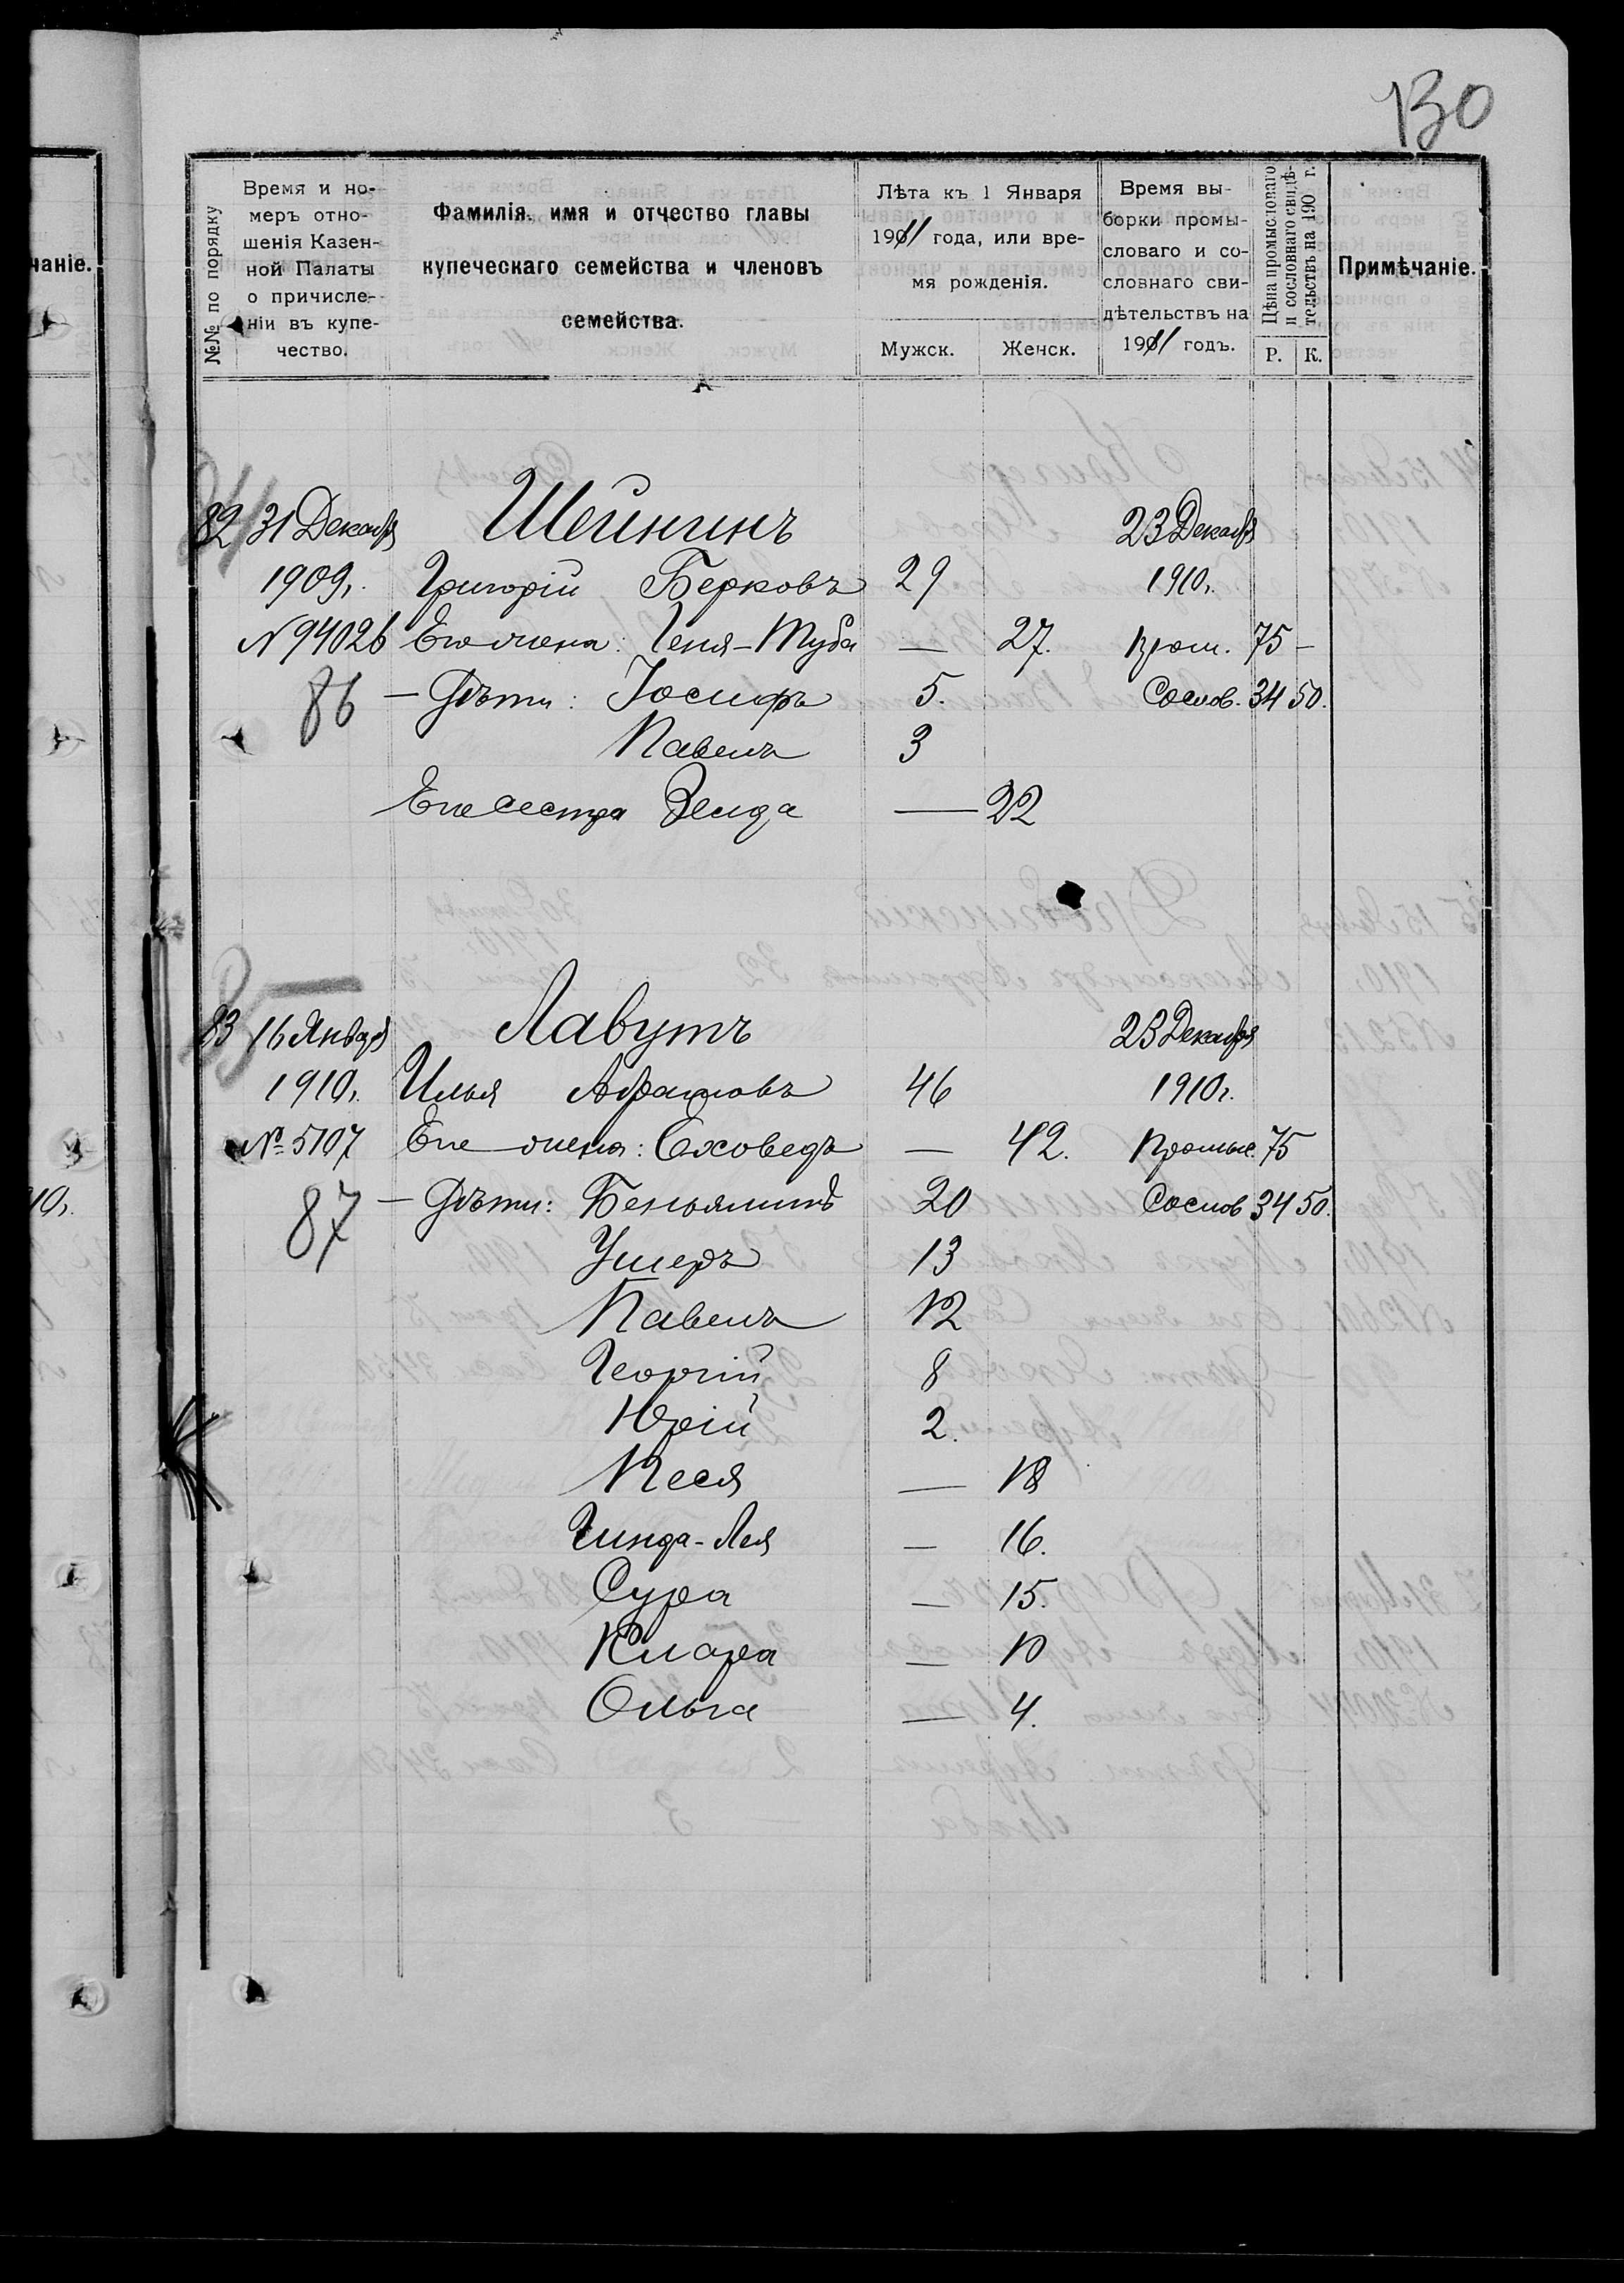 130
№№ по порядку
Время и но-
меръ отно-
шенія Казен-
ной Палаты
о причисле-
ніи въ купе-
чество.
Фамилія, имя и отчество главы
купеческаго семейства и членовъ
семейства.
Лѣта къ 1 Января
1911 года, или вре-
мя рожденія.
Мужск. Женск.
Время вы-
борки промы-
словаго и со-
словнаго сви-
дѣтельствъ на
1911 годъ.
Цѣна промысловаго
и сословнаго свидѣ-
тельствъ на 190 г.
Р. К.
Примѣчаніе.
чаніе.
84
82 31 Декабря Шейнинъ 23 Декабря
1909г. Григорій Берковъ 29 1910г.
№ 94026 Его жена: Геня-Туба — 27. Пром. 75 —
86 — Дѣти: Іосифъ 5. Сослов. 34 50.
Павелъ 3
Его сестра Зелда — 22
85
83 16 Января Лавутъ 23 Декабря
1910г. Илья Абрамовъ 46 1910г.
№ 5107 Его жена: Еховедъ — 42. Промыс. 75
87 — Дѣти: Беньяминъ 20 Сослов 34 50.
Ушеръ 13
Павелъ 12
Георгій 8
Юрій 2.
Песя — 18
Гинда-Лея — 16.
Сура — 15.
Клара — 10
Ольга — 4.
10г.